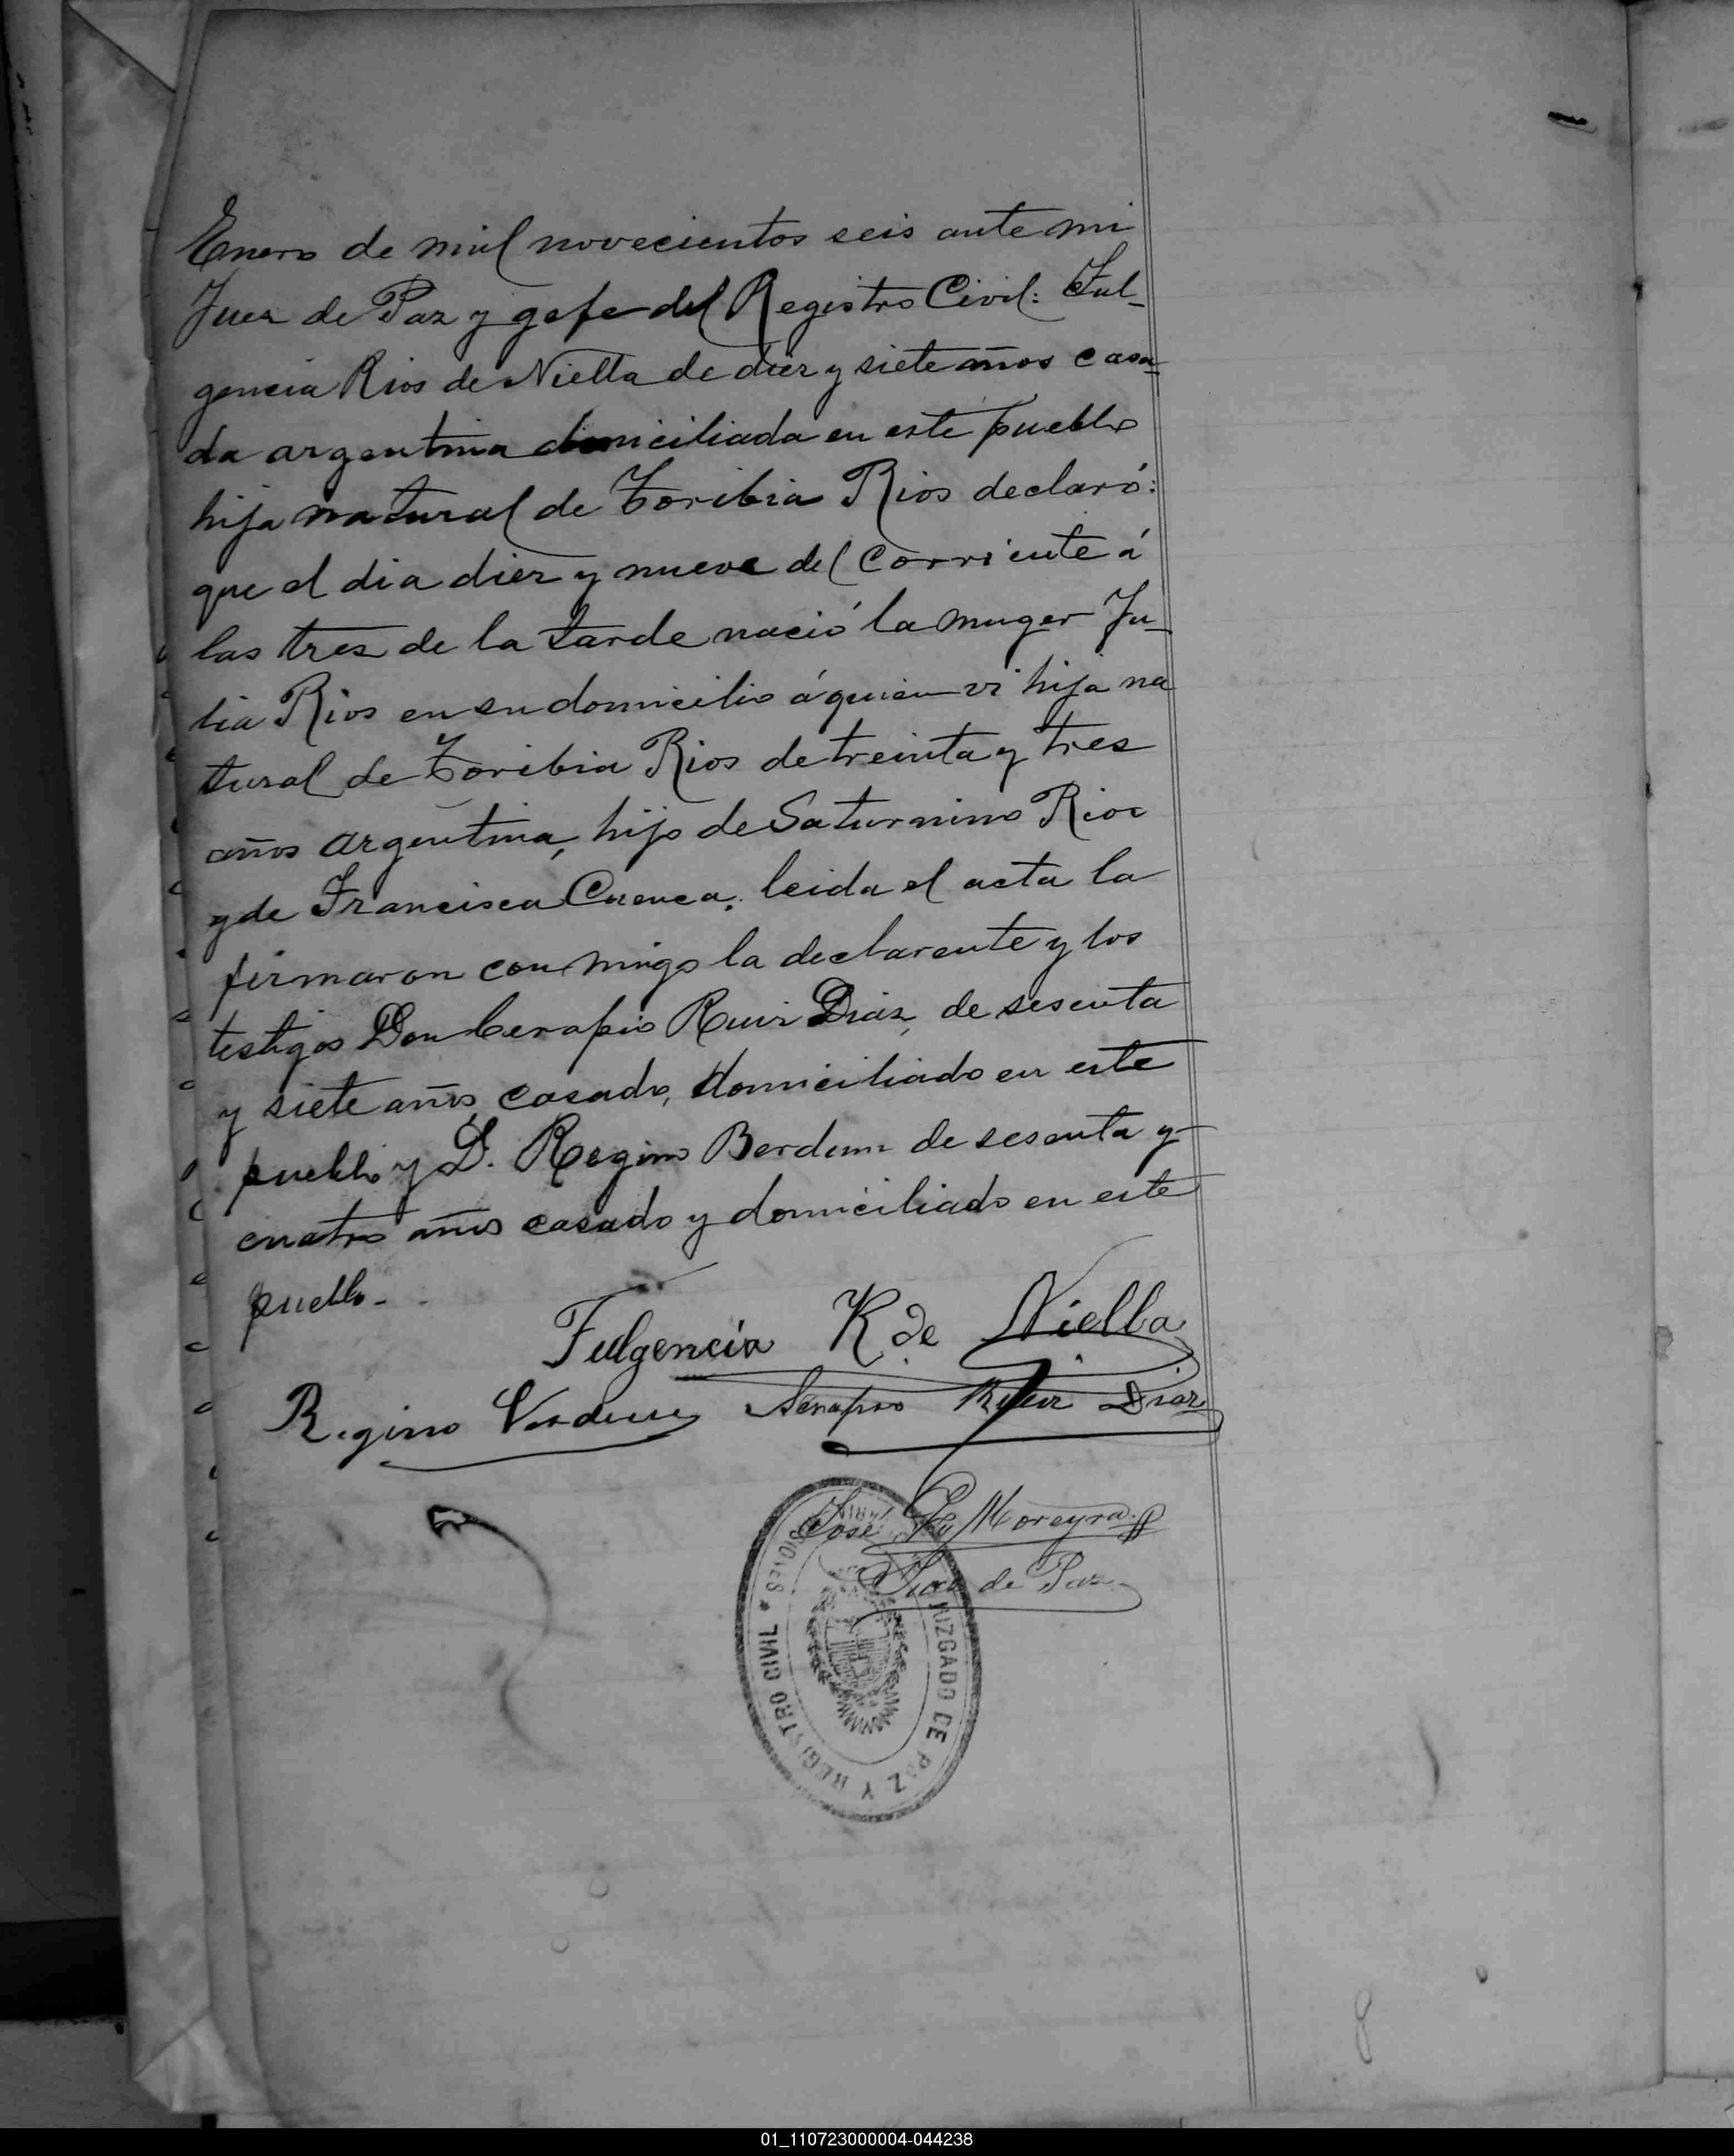 Enero de mil novecientos seis ante mi
Juez de Paz y gefe del Registro Civil: Ful-
gencia Rios de Niella de diez y siete años casa-
da argentina domiciliada en este pueblo
hija natural de Toribia Rios declaró:
que el dia diez y nueve del corriente á
las tres de la tarde nació la muger Ju-
lia Rios en su domicilio á quien vi hija na
tural de Toribia Rios de treinta y tres
años argentina, hijo de Saturnino Rios
y de Francisca Cuenca; leida el acta la
firmaron conmigo la declarante y los
testigos Don Cerapio Ruiz Diaz, de sesenta
y siete años, casado, domiciliado en este
pueblo y D. Regino Berdun de sesenta y
cuatro años casado y domiciliado en este
pueblo-
Fulgencia R de Niella
Regino Verdun Serapio Ruiz Diaz
José Moreyra
Juez de Paz
JUZGADO DE PAZ Y REGISTRO CIVIL *
01_110723000004-044238